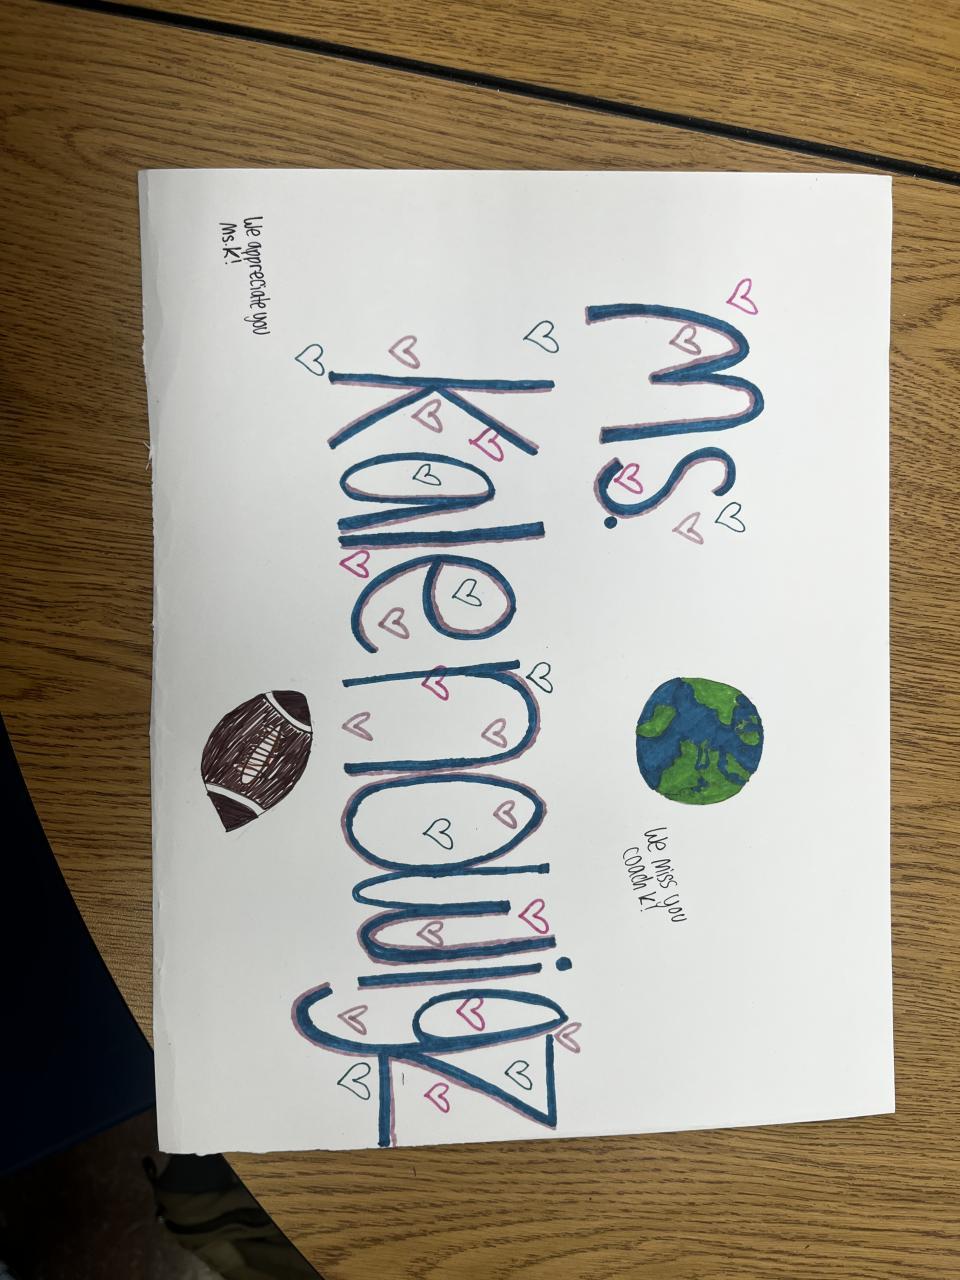 Ms.
We miss you
coach K!
Kalenowigz
We appreciate you
Ms.K!